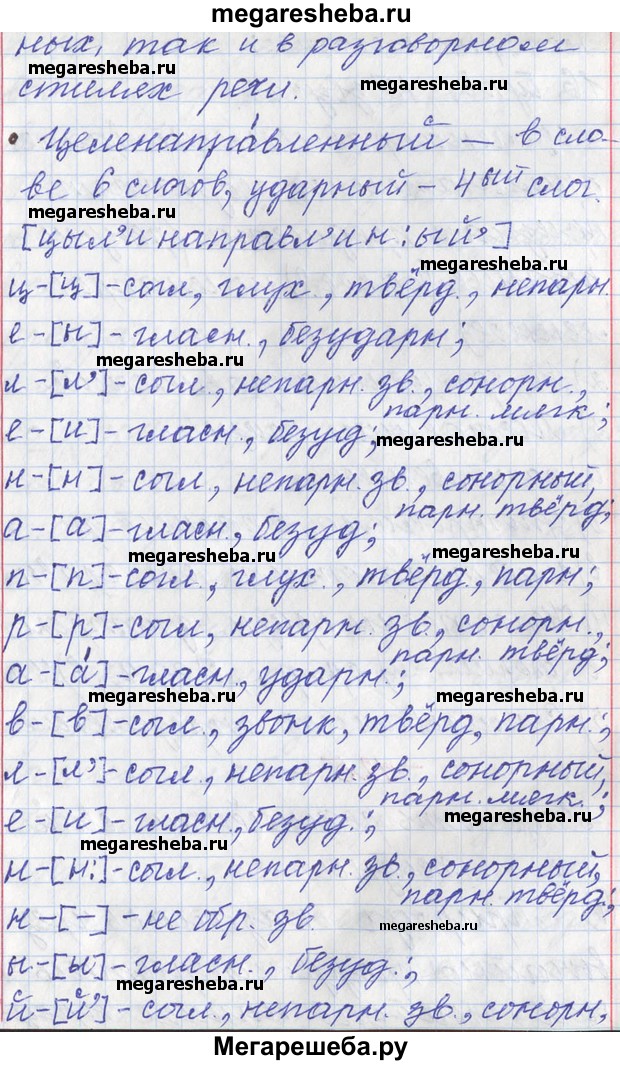 megaresheba.ru
ных, так и в разговорном
megaresheba.ru
megaresheba.ru
стилях речи.
• Целенапра́вленный – в сло-
ве 6 слогов, ударный – 4ый слог.
megaresheba.ru
[цыл'инаправл'ин:ый']
megaresheba.ru
ц-[ц]-согл, глух., твёрд., непарн.
е-[ы]-гласн., безударн;
megaresheba.ru
л-[л']-согл., непарн. зв., сонорн.,
парн. мягк;
е-[и]-гласн., безуд;
megaresheba.ru
н-[н]-согл., непарн. зв., сонорный,
парн. твёрд;
а-[а]-гласн., безуд;
megaresheba.ru
megaresheba.ru
п-[п]-согл., глух., твёрд., парн;
р-[р]-согл., непарн. зв., сонорн.,
парн. твёрд;
а-[а́]-гласн., ударн.;
megaresheba.ru
megaresheba.ru
в-[в]-согл., звонк, твёрд, парн.;
л-[л']-согл., непарн. зв., сонорный,
парн. мягк.;
е-[и]-гласн., безуд.;
megaresheba.ru
megaresheba.ru
н-[н:]-согл., непарн. зв., сонорный,
парн. твёрд.;
н-[-]-не обр. зв.
megaresheba.ru
ы-[ы]-гласн., безуд.;
megaresheba.ru
й-[й']-согл., непарн. зв., сонорн,
Мегарешеба.ру